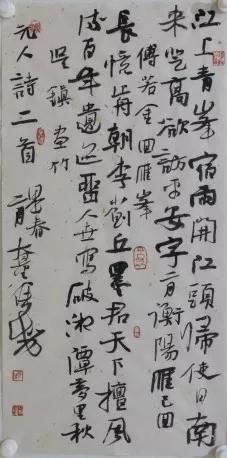 江上青峯宿雨開江頭歸使日南
來登高欲訪平安字二月衡陽雁已回
傅若金回雁峯
長憶前朝李薊丘墨君天下擅風
流百年遺迹留人世寫破湘潭夢里秋
吳鎮畫竹
元人詩二首
早春
二月